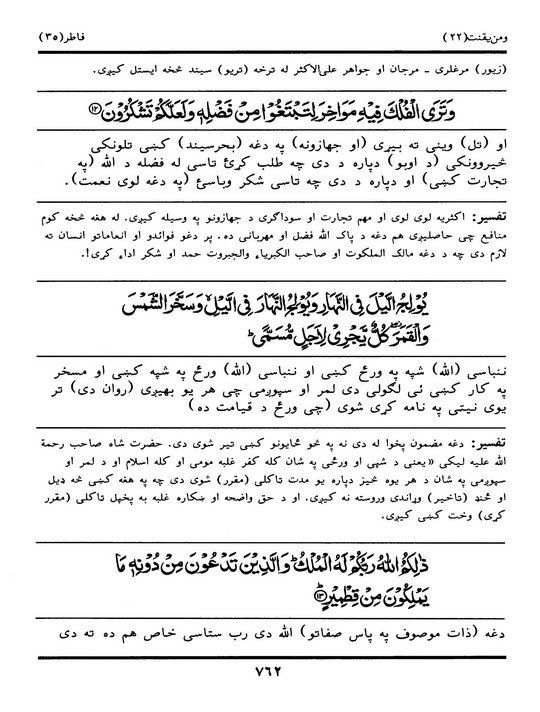 ومن یقنت(۲۲) فاطر(۳۵)
(زیور) مرغلری ـ مرجان او جواهر علی‌الاکثر له ترخه (تریو) سیند څخه ایستل کیږی.
وَتَرَى الْفُلْكَ فِيْهِ مَوَاخِرَ لِتَبْتَغُوْا مِنْ فَضْلِهٖ وَلَعَلَّكُمْ تَشْكُرُوْنَ ﴿۱۲﴾
او (تل) وینی ته بیړی (او جهازونه) په دغه (بحرسیند) کښی تلونکی
څیروونکی (د اوبو) دپاره د دی چه طلب کړئ تاسی له فضله د الله (په
تجارت کښی) او دپاره د دی چه تاسی شکر وباسئ (په دغه لوی نعمت).
تفسیر: اکثریه لوی لوی او مهم تجارت او سوداګری د جهازونو په وسیله کیږی. له هغه څخه کوم
منافع چی حاصلیږی هم دغه د پاک الله فضل او مهربانی ده. پر دغو فوائدو او انعاماتو انسان ته
لازم دی چه د دغه مالک الملکوت او صاحب الکبریاء والجبروت حمد او شکر اداء کړی!.
يُوْلِجُ الَّيْلَ فِي النَّهَارِ وَيُوْلِجُ النَّهَارَ فِي الَّيْلِ وَسَخَّرَ الشَّمْسَ
وَالْقَمَرَ كُلٌّ يَّجْرِيْ لِاَجَلٍ مُّسَمًّى ط
ننباسی (الله) شپه په ورځ کښی او ننباسی (الله) ورځ په شپه کښی او مسخر
په کار کښی ئی لګولی دی لمر او سپوږمی چی هر یو بهیږی (روان دی) تر
یوی نیټی په نامه کړی شوی (چی ورځ د قیامت ده)
تفسیر: دغه مضمون پخوا له دی نه په څو ځایونو کښی تیر شوی دی. حضرت شاه صاحب رحمة
الله علیه لیکی «یعنی د شپی او ورځی په شان کله کفر غلبه مومی او کله اسلام او د لمر او
سپوږمی په شان د هر یوه څیز دپاره یو مدت ټاکلی (مقرر) شوی دی چه په هغه کښی څه ډیل
او ځنډ (تاخیر) وړاندی وروسته نه کیږی. او د حق واضحه او ښکاره غلبه به پخپل ټاکلی (مقرر
کړی) وخت کښی کیږی.
ذٰلِكُمُ اللهُ رَبُّكُمْ لَهُ الْمُلْكُ ط وَالَّذِيْنَ تَدْعُوْنَ مِنْ دُوْنِهٖ مَا
يَمْلِكُوْنَ مِنْ قِطْمِيْرٍ ﴿۱۳﴾
دغه (ذات موصوف په پاس صفاتو) الله دی رب ستاسی خاص هم ده ته دی
۷۶۲